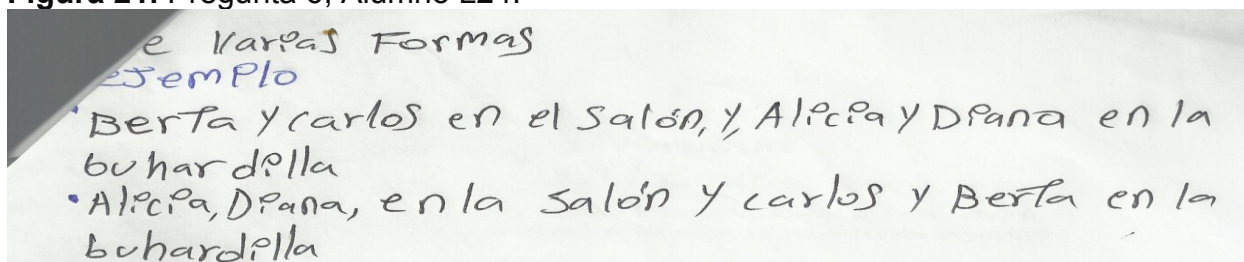 e Varias Formas
ejemplo
• Berta y carlos en el salón, y, Alicia y Diana en la
buhardilla
• Alicia, Diana, en la salón y carlos y Berta en la
buhardilla